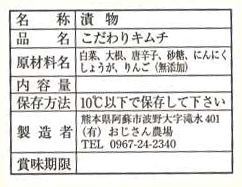 名称 漬物
品名 こだわりキムチ
原材料名 白菜、大根、唐辛子、砂糖、にんにく
しょうが、りんご（無添加）
内容量
保存方法 10℃以下で保存して下さい
製造者 熊本県阿蘇市波野大字滝水401
（有）おじさん農場
TEL 0967-24-2340
賞味期限